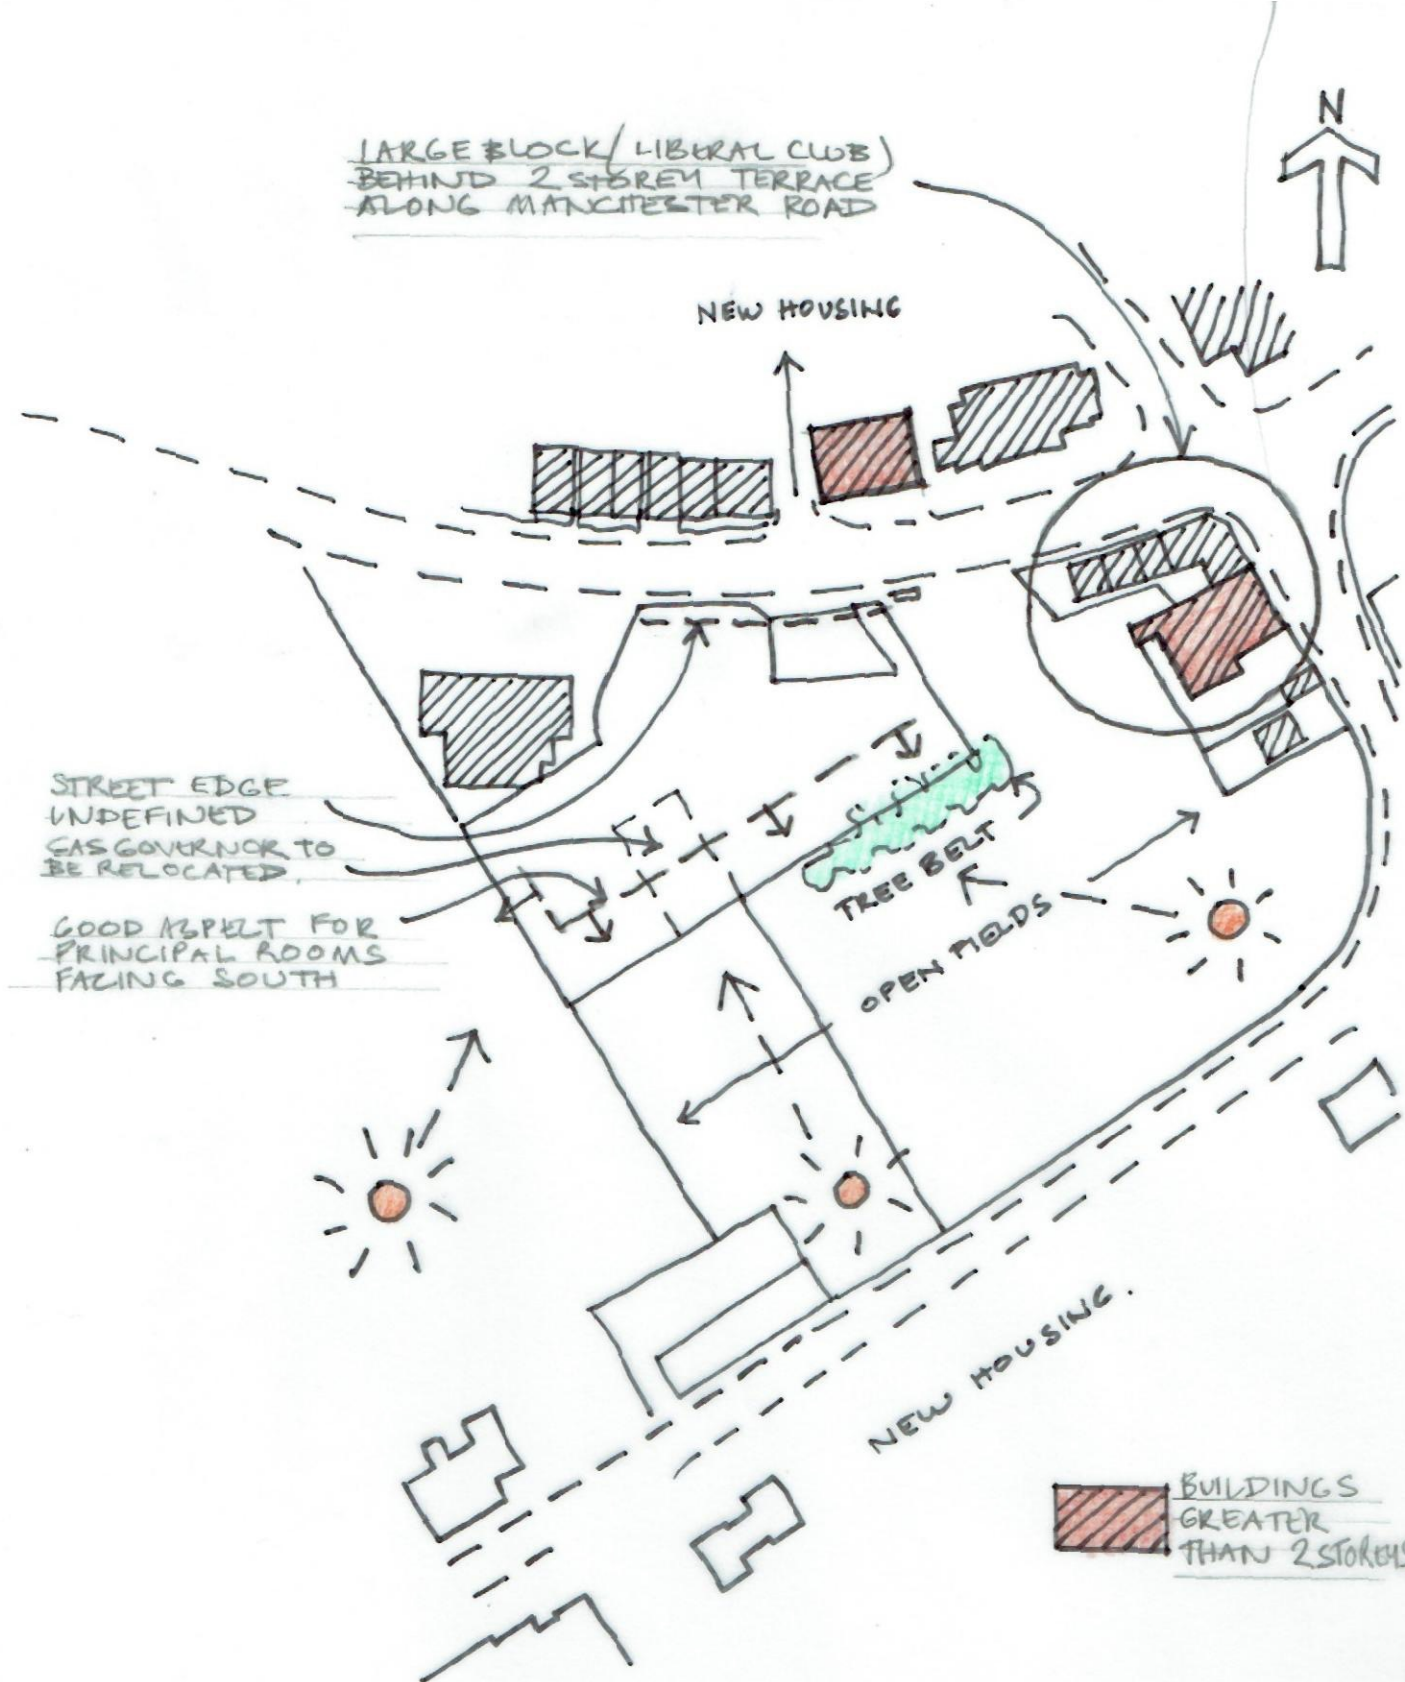 N
LARGE BLOCK (LIBERAL CLUB)
BEHIND 2 STOREY TERRACE
ALONG MANCHESTER ROAD
NEW HOUSING
STREET EDGE
UNDEFINED
GAS GOVERNOR TO
BE RELOCATED.
GOOD ASPECT FOR
PRINCIPAL ROOMS
FACING SOUTH
TREE BELT
OPEN FIELDS
NEW HOUSING.
BUILDINGS
GREATER
THAN 2 STOREYS